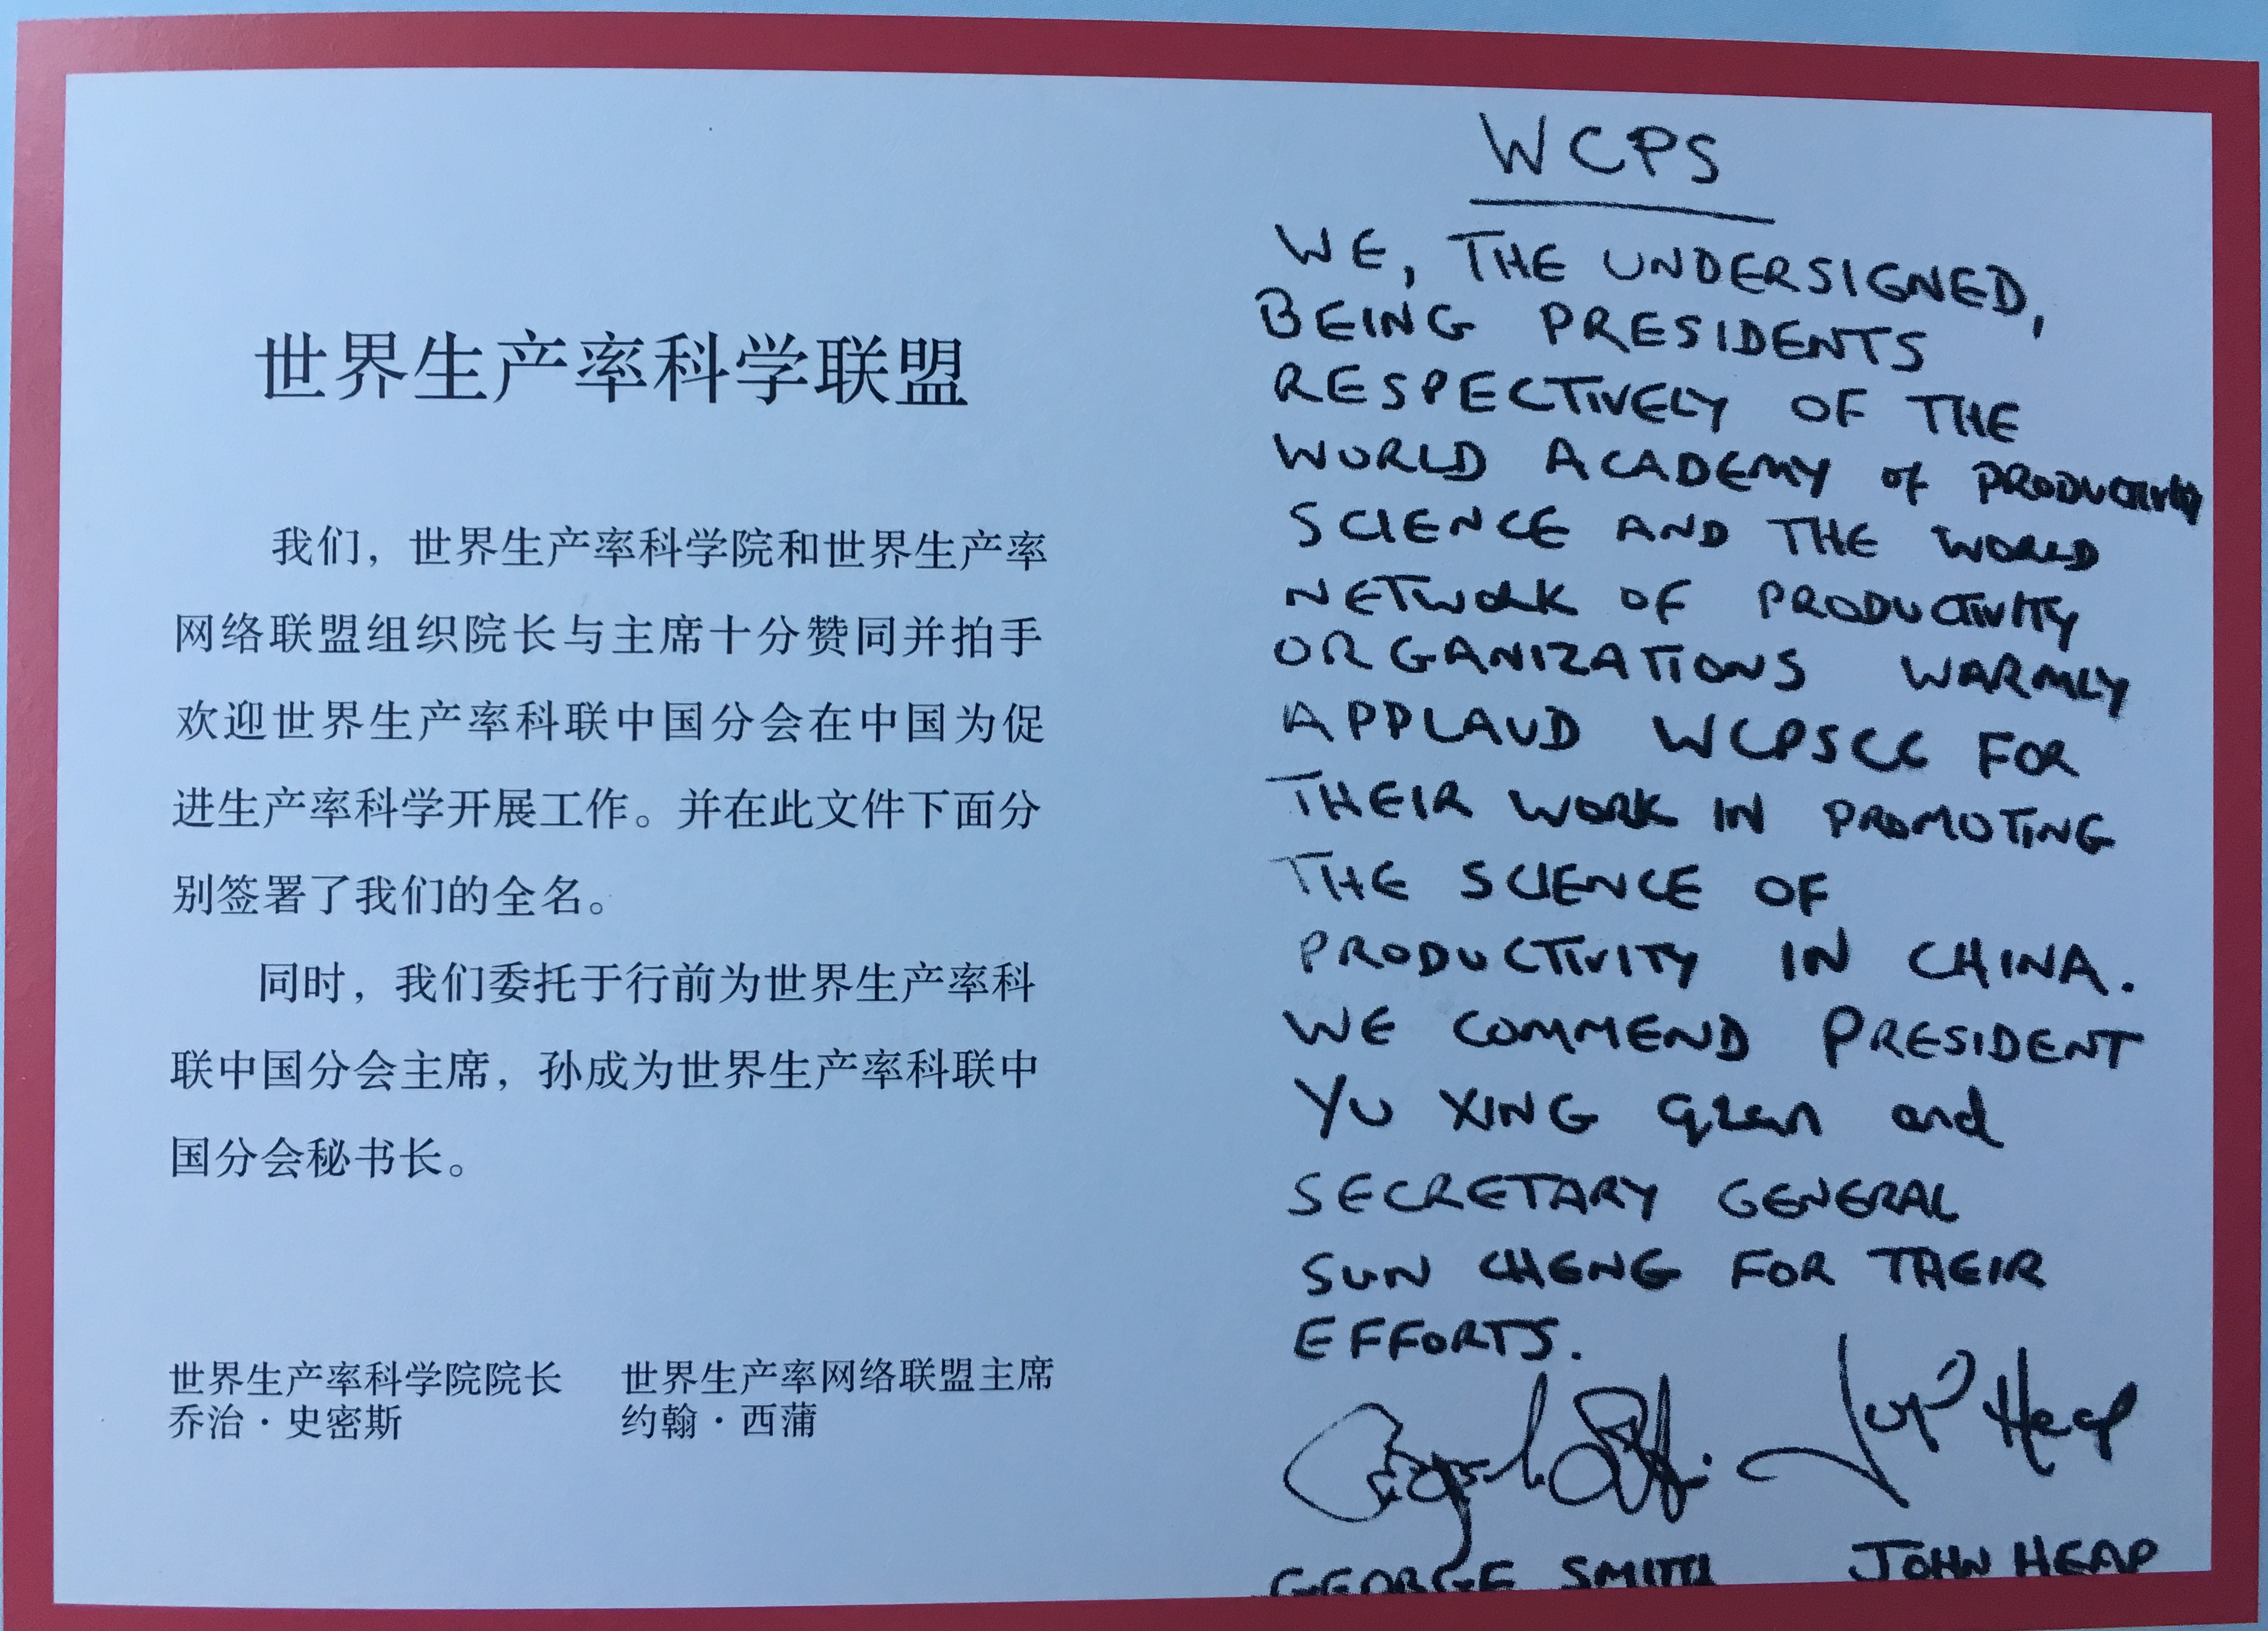 世界生产率科学联盟
我们，世界生产率科学院和世界生产率
网络联盟组织院长与主席十分赞同并拍手
欢迎世界生产率科联中国分会在中国为促
进生产率科学开展工作。并在此文件下面分
别签署了我们的全名。
同时，我们委托于行前为世界生产率科
联中国分会主席，孙成为世界生产率科联中
国分会秘书长。
世界生产率科学院院长 世界生产率网络联盟主席
乔治·史密斯 约翰·西蒲
WCPS
WE, THE UNDERSIGNED,
BEING PRESIDENTS
RESPECTIVELY OF THE
WORLD ACADEMY of PRODUCTIVITY
SCIENCE AND THE WORLD
NETWORK OF PRODUCTIVITY
ORGANIZATIONS WARMLY
APPLAUD WCPSCC FOR
THEIR WORK IN PROMOTING
THE SCIENCE OF
PRODUCTIVITY IN CHINA.
WE COMMEND PRESIDENT
YU XING and
SECRETARY GENERAL
SUN CHENG FOR THEIR
EFFORTS.
Heap
GEORGE SMITH JOHN HEAP